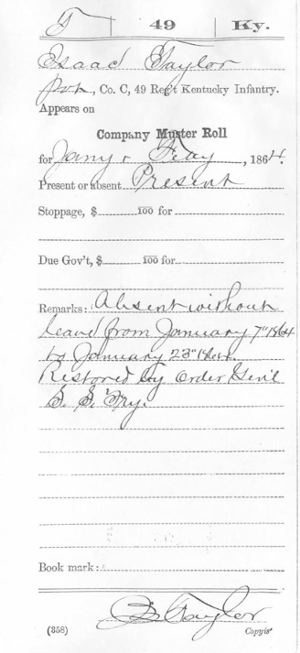 T 49 Ky.
Isaac Taylor
Pvt, Co. C, 49 Reg't Kentucky Infantry.
Appears on
Company Muster Roll
for Jany & Feby, 1864.
Present or absent Present
Stoppage, $ 100 for
Due Gov't, $ 100 for
Remarks: Absent without
leave from January 7" 1864
to January 23" 1864.
Restored by order Gen'l
S. S. Fry.
Book mark:
Taylor
(358) Copyist